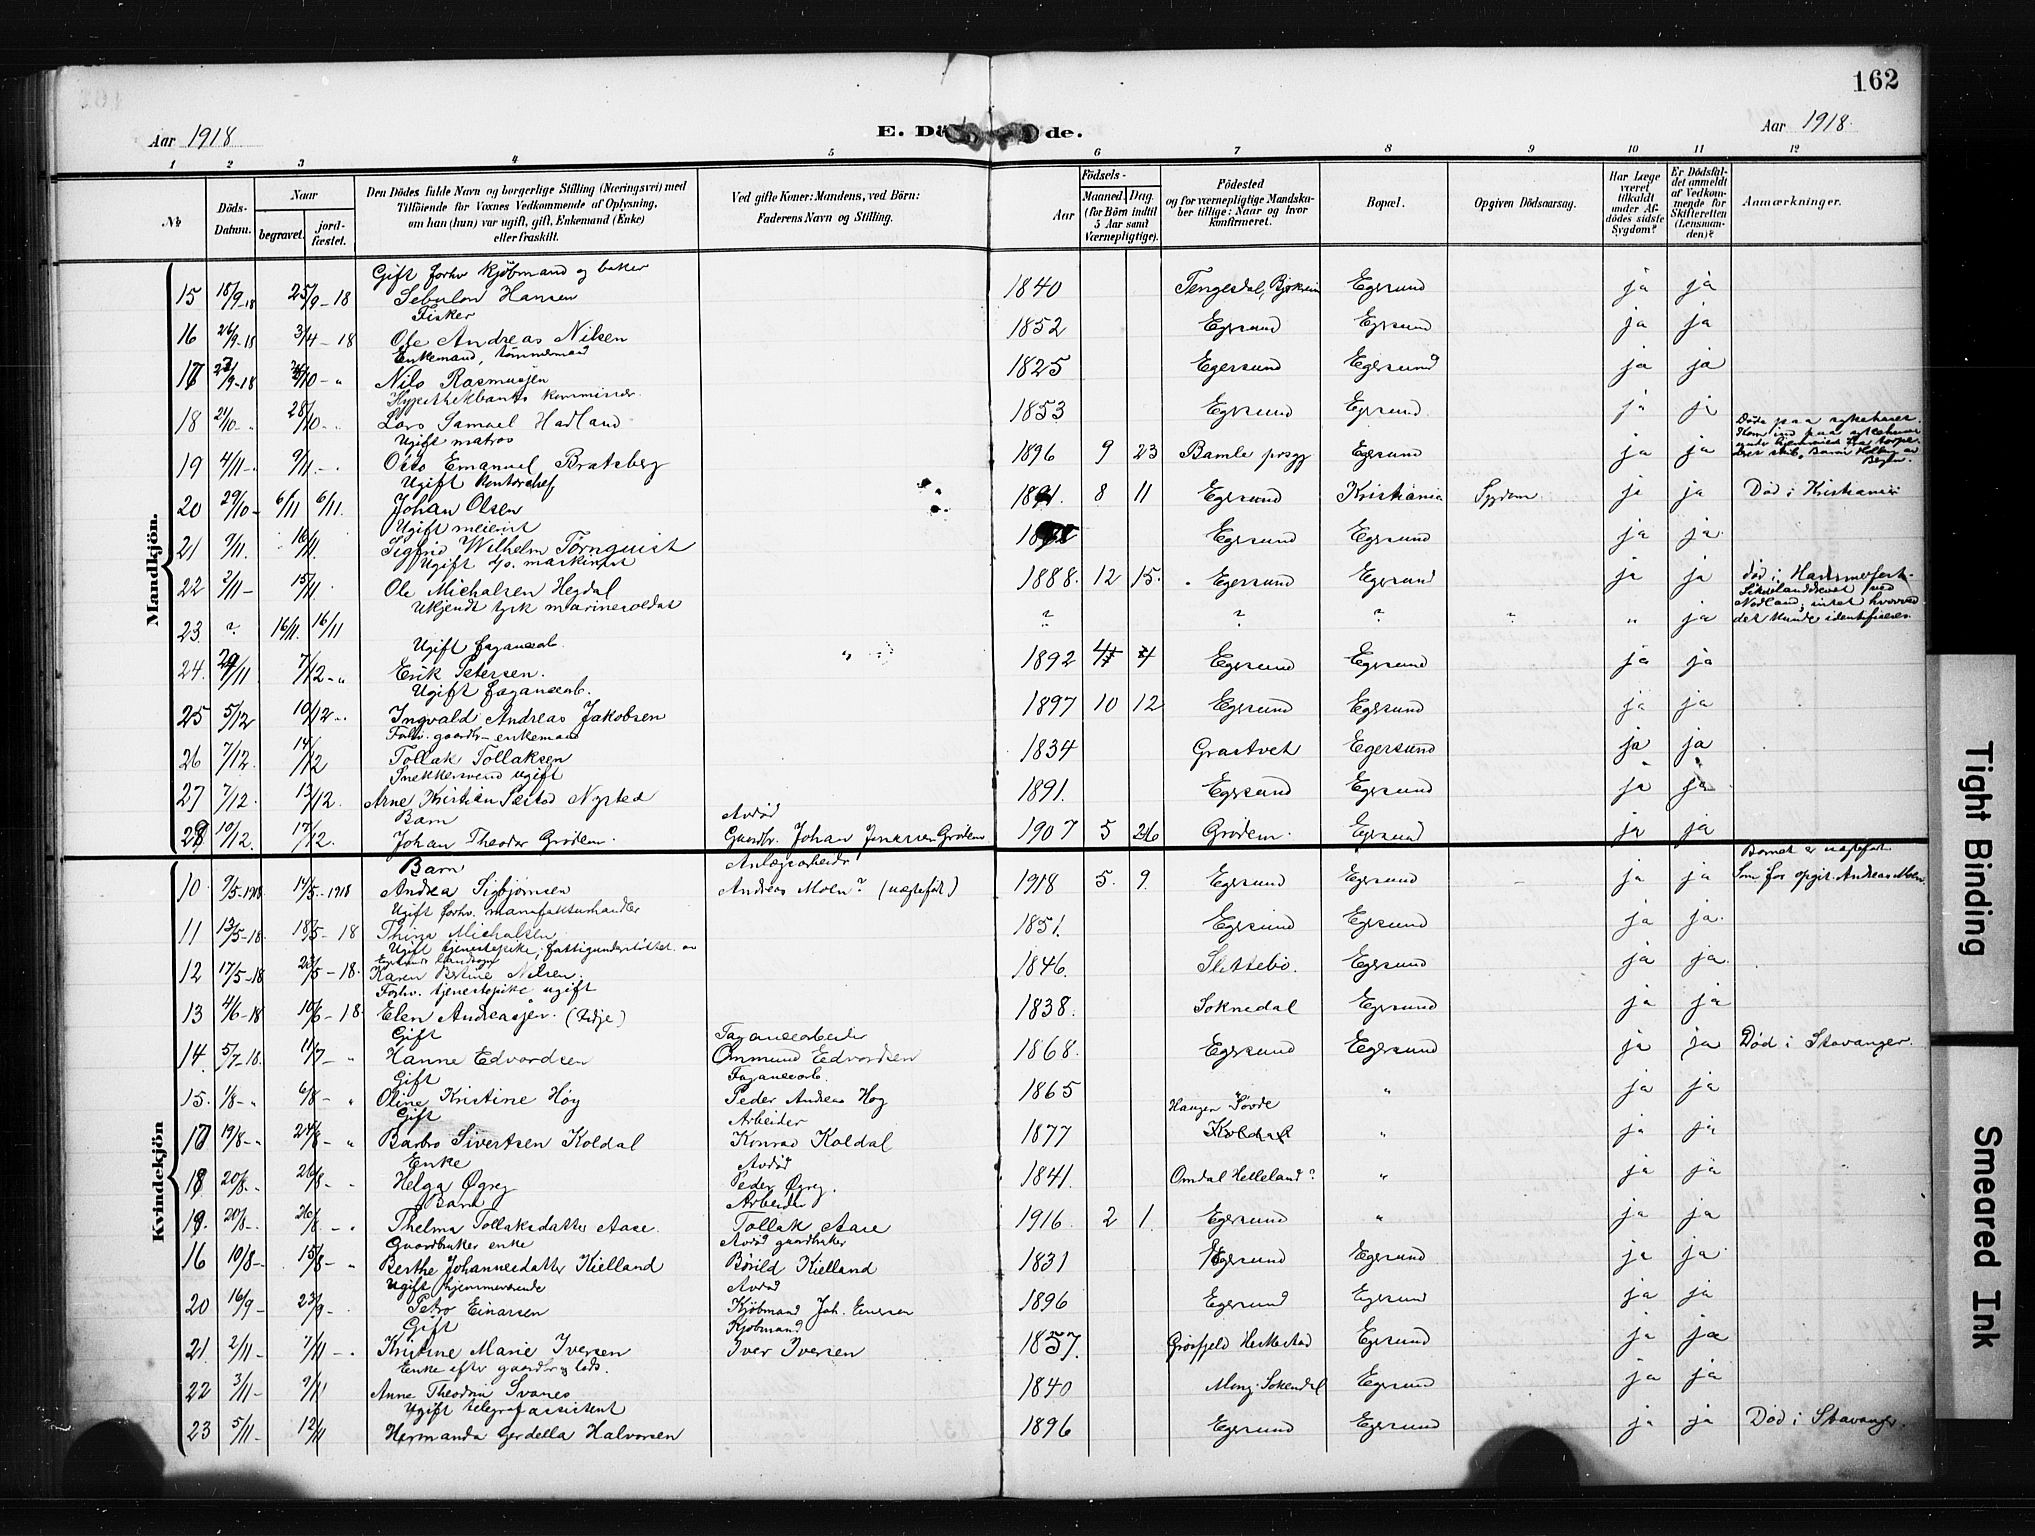 162
Aar 1918
E. Dö de.
Aar 1918.
1 2 3 4 5 6 7 8 9 10 11 12
No. Döds-Datum. Naar begravet. jord-fæstet. Den Dödes fulde Navn og borgerlige Stilling (Næringsvei) med Tilföiende for Voxnes Vedkommende af Oplysning, om han (hun) var ugift, gift, Enkemand (Enke) eller fraskilt. Ved gifte Koner: Mandens, ved Börn: Faderens Navn og Stilling. Födsels- Aar Maaned Dag. (for Börn indtil 5 Aar samt Værnepligtige). Födested og for værnepligtige Mandskaber tillige: Naar og hvor konfirmeret. Bopæl. Opgiven Dödsaarsag. Har Læge været tilkaldt under Afdödes sidste Sygdom? Er Dödsfaldet anmeldt af Vedkommende for Skifteretten (Lensmanden)? Anmærkninger.
Mandkjön.
Gift forhv kjøbmand og baker
15 18/9-18 25/9-18 Sebulon Hansen 1840 Tengesdal, Bjerkreim Egersund ja ja
Fisker
16 26/9-18 3/4-18 Ole Andreas Nilsen 1852 Egersund Egersund ja ja
Enkemand, tømmermand
17 Nils Rasmussen 1825 Egersund Egersund ja ja
Hypothekbanks kommissær
18 21/10 28/10 Lars Samuel Hadland 1853 Egersund Egersund ja ja
Ugift matros
19 4/11 9/11 Otto Emanuel Bratsberg 1896 9 23 Bamle prgj Egersund ja ja
Døde paa sykehuset.
Kom ind paa sykehuset
Ugift kontorchef
20 29/10 6/11 6/11. Johan Olsen 8 11 Egersund Kristiania Sygdom ja ja Død i Kristiania
Ugift meierist
21 9/11. 16/11 Sigfrid Wilhelm Törnquist Egersund Egersund ja ja.
Ugift d/s. maskinist
22 3/11 15/11. Ole Michalsen Hegdal 1888. 12 15. Egersund Egersund ja ja
Ukjendt tysk marinesoldat
23 ? 16/11. 16/11 ? ? ? " " ja
Nodland, intet hvorved
det kunde identificeres.
Ugift fayancearb.
24. 29/11 7/12 " Erik Petersen. " 1892 4 4 Egersund Egersund ja ja
Ugift fayancearb.
25 5/12 10/12 Ingvald Andreas Jakobsen 1897 10 12 Egersund Egersund ja ja
Forhv. gaardbr. enkemand
26 7/12. 14/12 Tollak Tollaksen 1834 Grastvet Egersund ja ja
Snekkersvend ugift
27 7/12. 13/12. Arne Kristian Sæstad Nysted 1891. Egersund Egersund ja ja
Barn Avdød
28 10/12. 17/12. Johan Theodor Grødem. Gaardbr. Johan Jonassen Grødem 1907 5 26 Grødem. Egersund ja ja
Kvindekjön
Barn Anlægsarbeider Barnet er uægtefødt.
10. 9/5-1918 14/5-1918 Andrea Sigbjørnsen Andreas Moen? (uægtefødt) 1918 5. 9. Egersund Egersund ja ja Som far opgit. Andreas Moen.
Ugift forhv. manufakturhandler
11 13/5-18. 18/5-18 Thina Michalsen 1851. Egersund Egersund ja ja.
Ugift tjenestepike, fattigunderstøttet. av
Egersunds landsogn
12 17/5-18 23/5-18. Karen Bertine Nilsen. 1846. Slettebø. Egersund ja ja.
Forhv. tjenestepike ugift
13 4/6-18 10/6-18. Elen Andreasjen. 1838. Soknedal Egersund ja ja
Gift Fayancearbeider
14. 5/7-18. 11/7- " Hanne Edvardsen Ommund Edvardsen 1868. Egersund Egersund ja ja Død i Stavanger.
Gift Fayancearb.
15. 1/8- " 6/8- " Oline Kristine Høy Peder Andreas Høy 1865 " " ja ja
Gift Arbeider Haugen Sovde
17 19/8- " 24/8- " Barbro Sivertsen Koldal Konrad Koldal 1877 Koldal " ja ja
Enke Avdød
18 20/8. " 26/8- " Helga Øgrey Peder Øgrey. 1841. Omdal Helleland? " ja ja
Barn Arbeider
19. 20/8-. 26/8- " Thelma Tollaksdatter Aase. Tollak Aase 1916. 2 1. Egersund " ja ja
Gaardbruker enke Avdød gaardbruker
16 10/8- 15/8- " Berthe Johannesdatter Kielland Børild Kielland 1831 Egersund Egersund ja ja.
Ugift hjemmeværende Avdød
20 16/9- 23/9- Petra Einarsen Kjøbmand Joh. Einarsen 1896 Egersund Egersund ja ja
Gift Kjøbmand
21. 2/11- 7/11- Kristine Marie Iversen Iver Iversen 1857. Grøsfjeld Heskestad Egersund ja ja
Enke efter gaardbr. og lods.
22 3/11- 9/11 Anne Theodora Svanes 1840 Mong. Sokendal Egersund ja ja
Ugift telegrafassistent
23 5/11- 12/11 Hermanda Gerdella Halvorsen 1896 Egersund Egersund ja ja Død i Stavanger.
Tight Binding
Smeared Ink